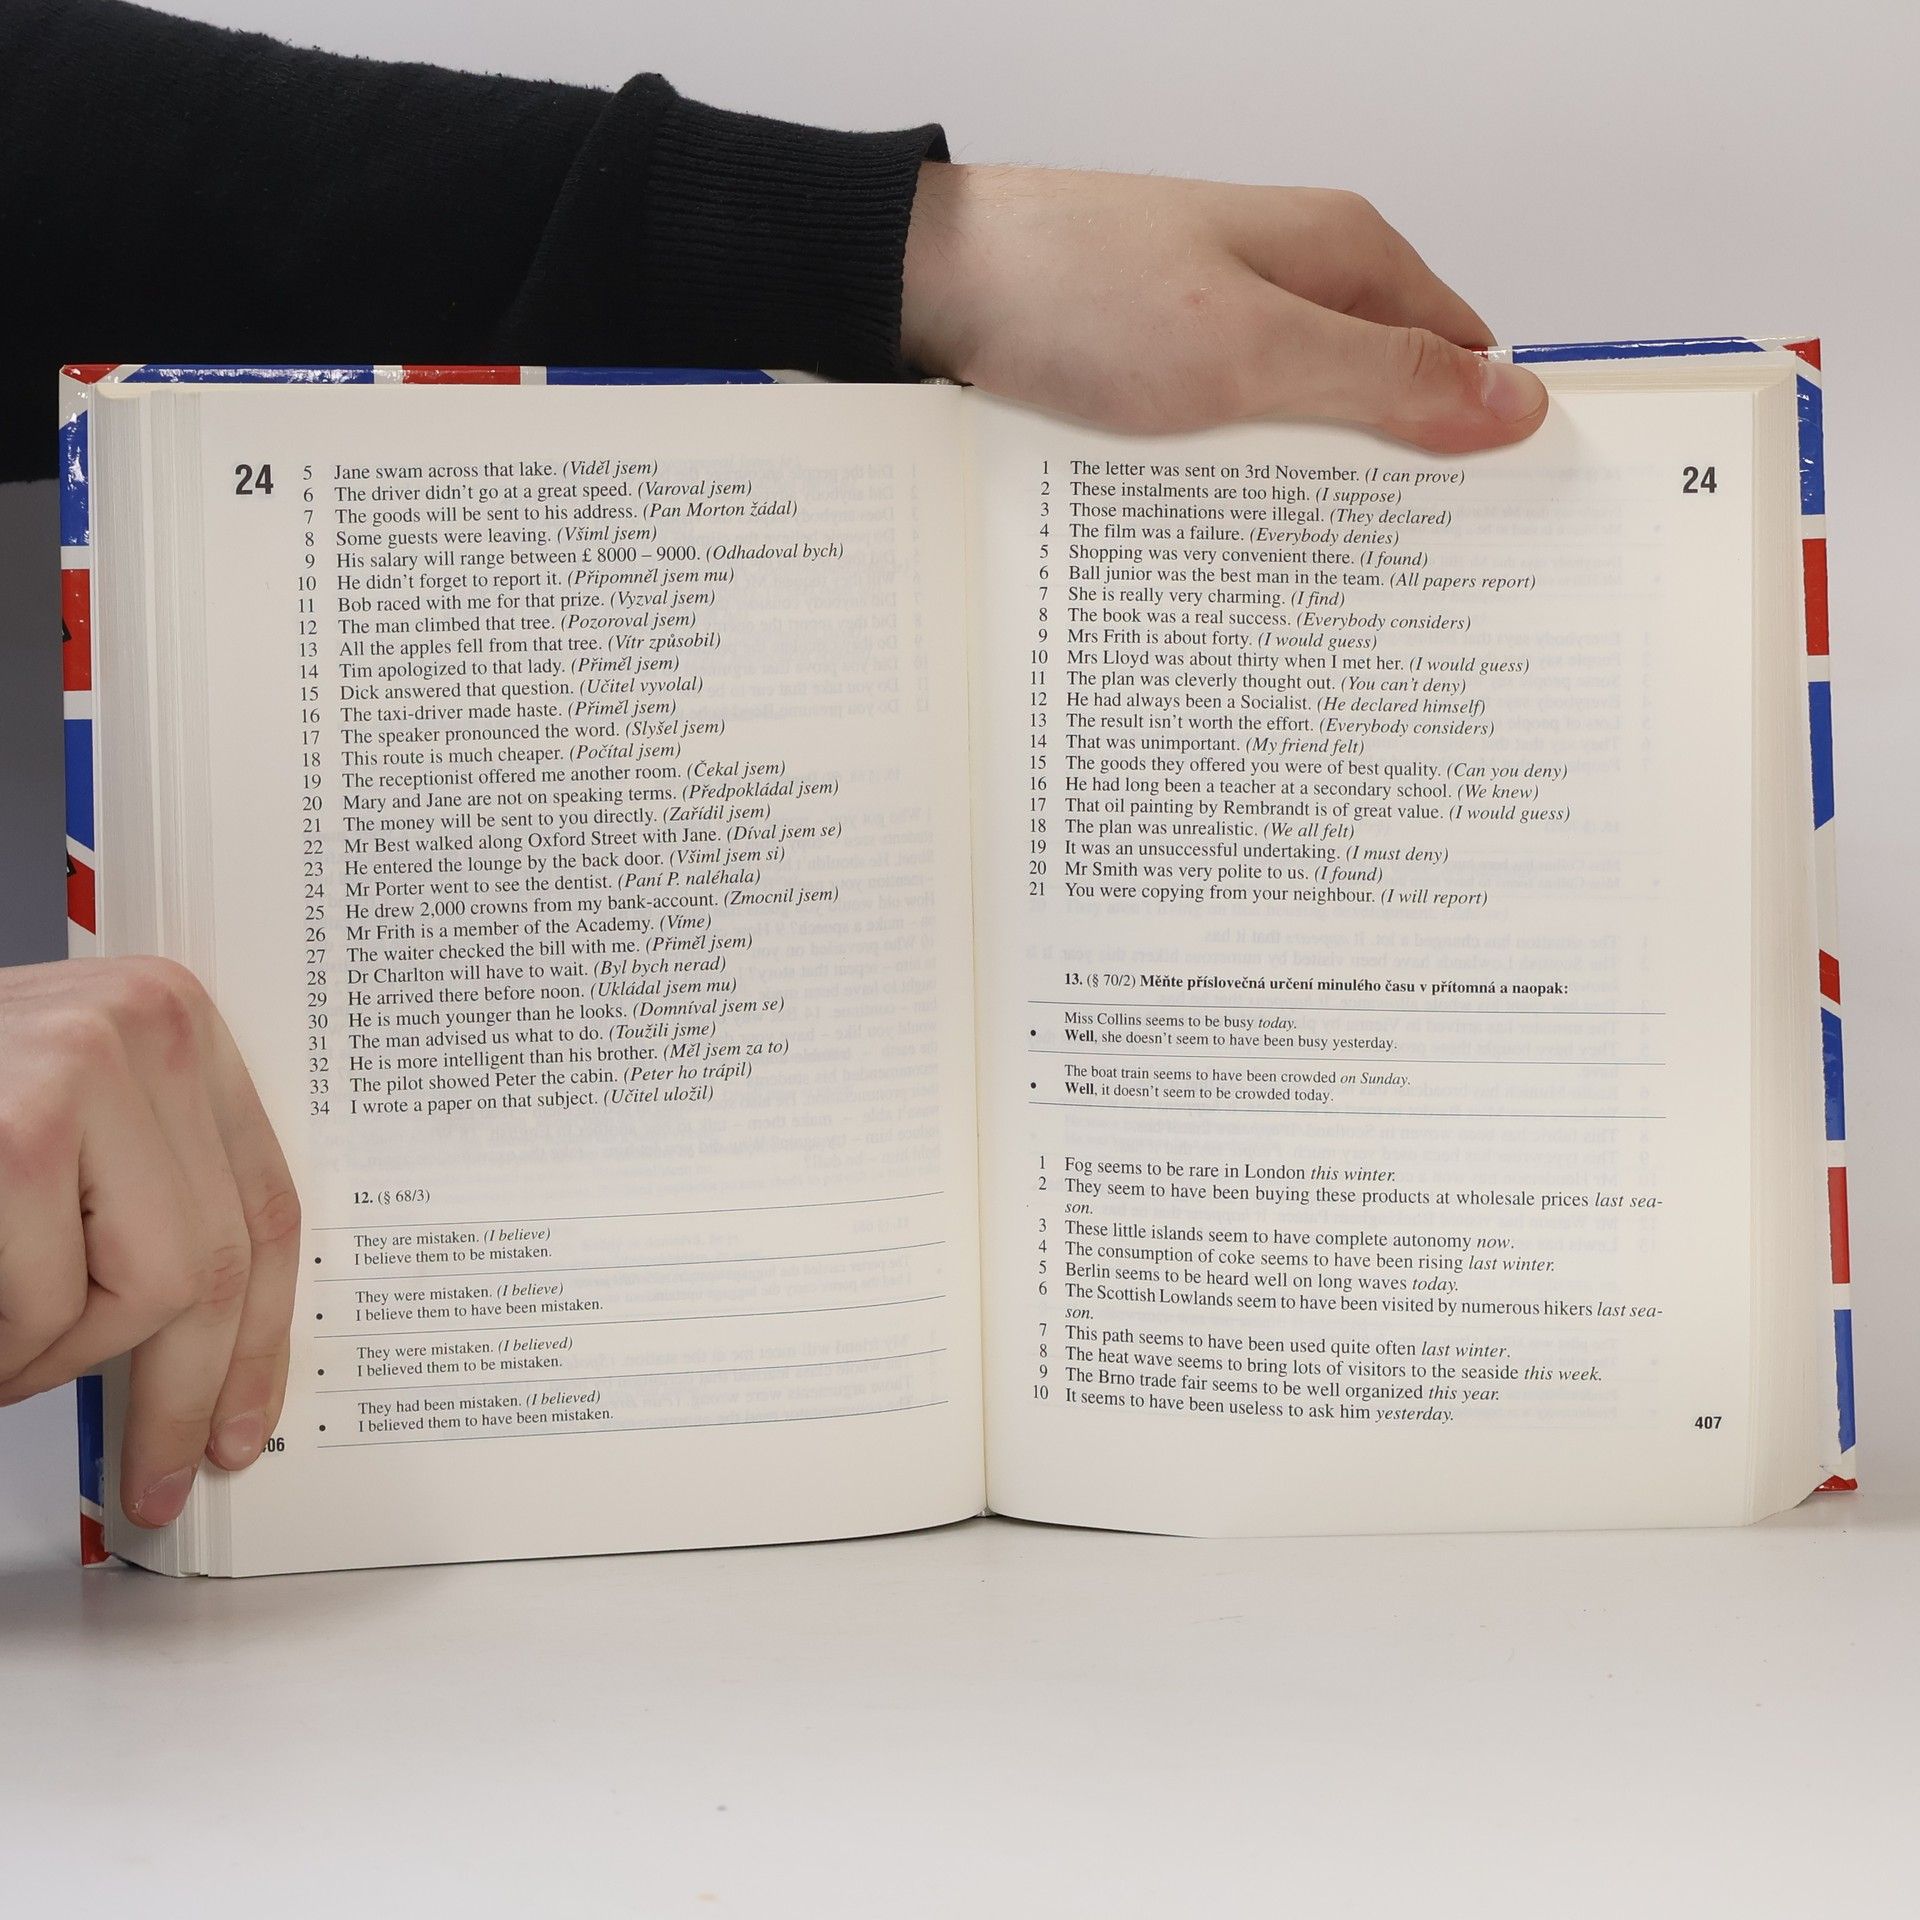 24
5 Jane swam across that lake. (Viděl jsem)
6 The driver didn't go at a great speed. (Varoval jsem)
7 The goods will be sent to his address. (Pan Morton žádal)
8 Some guests were leaving. (Všiml jsem)
9 His salary will range between £ 8000 – 9000. (Odhadoval bych)
10 He didn't forget to report it. (Připomněl jsem mu)
11 Bob raced with me for that prize. (Vyzval jsem)
12 The man climbed that tree. (Pozoroval jsem)
13 All the apples fell from that tree. (Vítr způsobil)
14 Tim apologized to that lady. (Přiměl jsem)
15 Dick answered that question. (Učitel vyvolal)
16 The taxi-driver made haste. (Přiměl jsem)
17 The speaker pronounced the word. (Slyšel jsem)
18 This route is much cheaper. (Počítal jsem)
19 The receptionist offered me another room. (Čekal jsem)
20 Mary and Jane are not on speaking terms. (Předpokládal jsem)
21 The money will be sent to you directly. (Zařídil jsem)
22 Mr Best walked along Oxford Street with Jane. (Díval jsem se)
23 He entered the lounge by the back door. (Všiml jsem si)
24 Mr Porter went to see the dentist. (Paní P. naléhala)
25 He drew 2,000 crowns from my bank-account. (Zmocnil jsem)
26 Mr Frith is a member of the Academy. (Víme)
27 The waiter checked the bill with me. (Přiměl jsem)
28 Dr Charlton will have to wait. (Byl bych nerad)
29 He arrived there before noon. (Ukládal jsem mu)
30 He is much younger than he looks. (Domníval jsem se)
31 The man advised us what to do. (Toužili jsme)
32 He is more intelligent than his brother. (Měl jsem za to)
33 The pilot showed Peter the cabin. (Peter ho trápil)
34 I wrote a paper on that subject. (Učitel uložil)
12. (§ 68/3)
They are mistaken. (I believe)
• I believe them to be mistaken.
They were mistaken. (I believe)
• I believe them to have been mistaken.
They were mistaken. (I believed)
• I believed them to be mistaken.
They had been mistaken. (I believed)
• I believed them to have been mistaken.
06
24
1 The letter was sent on 3rd November. (I can prove)
2 These instalments are too high. (I suppose)
3 Those machinations were illegal. (They declared)
4 The film was a failure. (Everybody denies)
5 Shopping was very convenient there. (I found)
6 Ball junior was the best man in the team. (All papers report)
7 She is really very charming. (I find)
8 The book was a real success. (Everybody considers)
9 Mrs Frith is about forty. (I would guess)
10 Mrs Lloyd was about thirty when I met her. (I would guess)
11 The plan was cleverly thought out. (You can't deny)
12 He had always been a Socialist. (He declared himself)
13 The result isn't worth the effort. (Everybody considers)
14 That was unimportant. (My friend felt)
15 The goods they offered you were of best quality. (Can you deny)
16 He had long been a teacher at a secondary school. (We knew)
17 That oil painting by Rembrandt is of great value. (I would guess)
18 The plan was unrealistic. (We all felt)
19 It was an unsuccessful undertaking. (I must deny)
20 Mr Smith was very polite to us. (I found)
21 You were copying from your neighbour. (I will report)
13. (§ 70/2) Měňte příslovečná určení minulého času v přítomná a naopak:
Miss Collins seems to be busy today.
• Well, she doesn't seem to have been busy yesterday.
The boat train seems to have been crowded on Sunday.
• Well, it doesn't seem to be crowded today.
1 Fog seems to be rare in London this winter.
2 They seem to have been buying these products at wholesale prices last sea-
son.
3 These little islands seem to have complete autonomy now.
4 The consumption of coke seems to have been rising last winter.
5 Berlin seems to be heard well on long waves today.
6 The Scottish Lowlands seem to have been visited by numerous hikers last sea-
son.
7 This path seems to have been used quite often last winter.
8 The heat wave seems to bring lots of visitors to the seaside this week.
9 The Brno trade fair seems to be well organized this year.
10 It seems to have been useless to ask him yesterday.
407